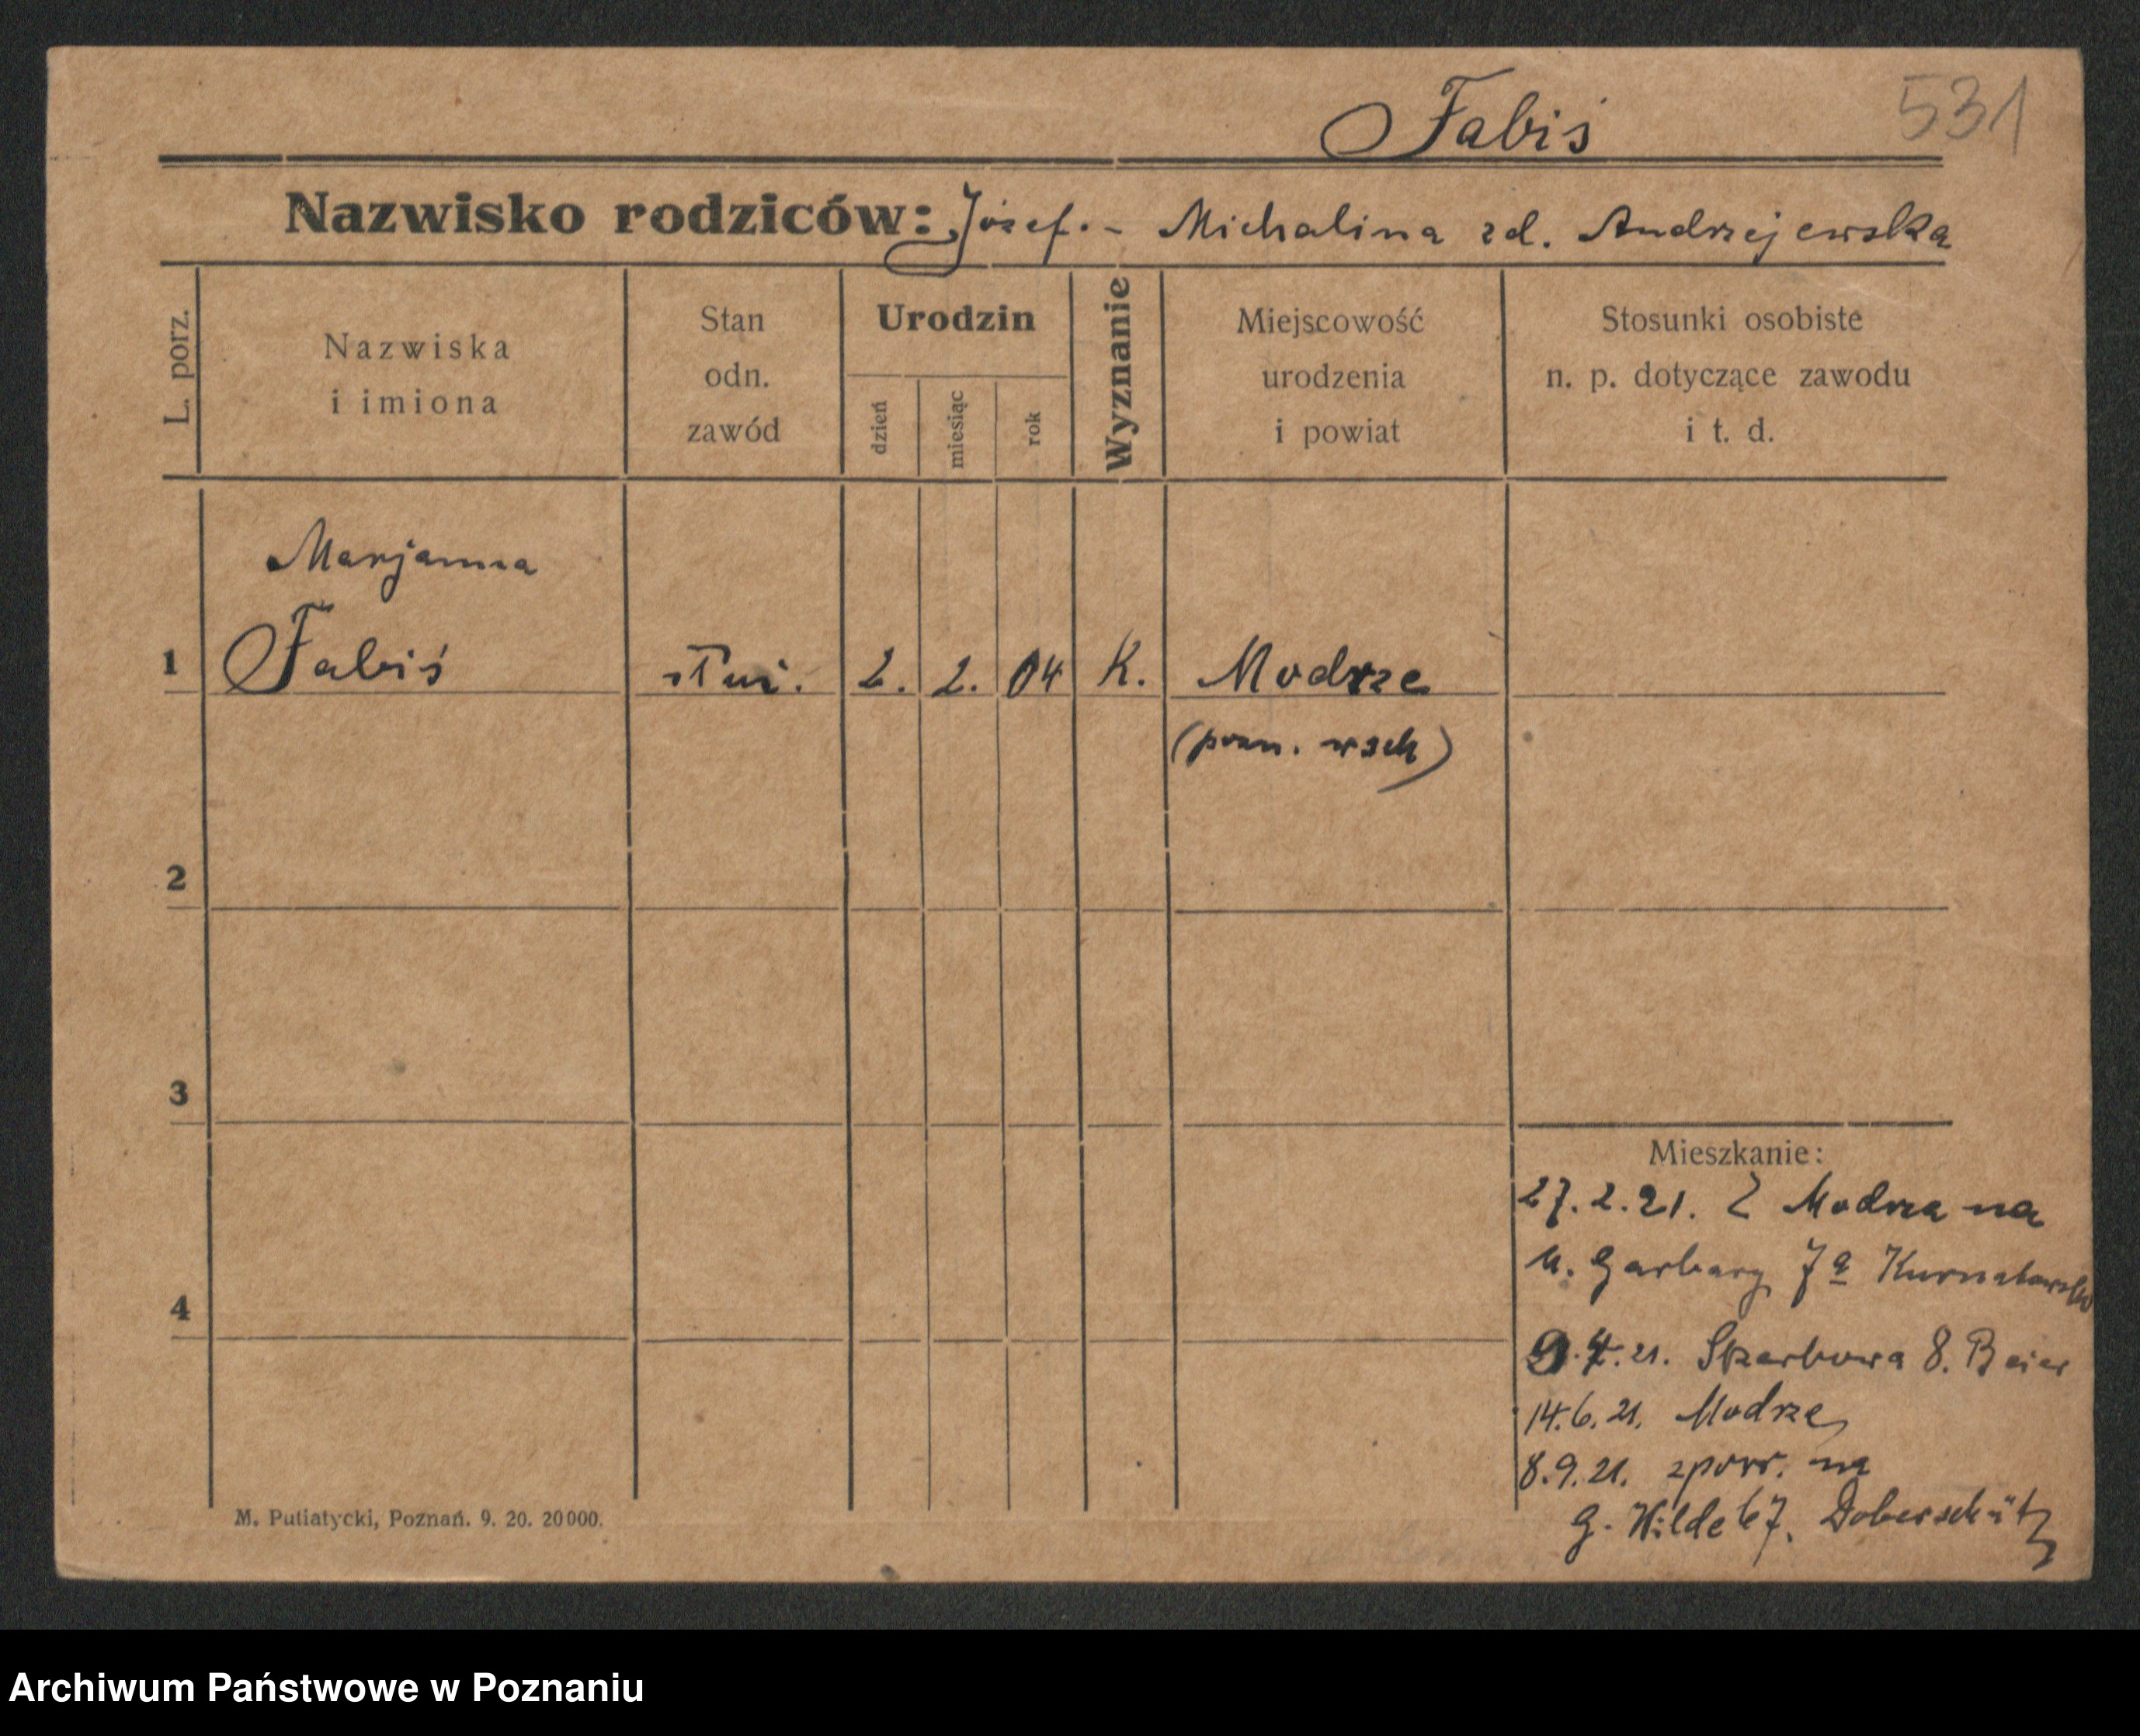 531
Fabiś
Nazwisko rodziców: Józef. - Michalina zd. Andrzejewska
L. porz.
Nazwiska
i imiona
Stan
odn.
zawód
Urodzin
dzień
miesiąc
rok
Wyznanie
Miejscowość
urodzenia
i powiat
Stosunki osobiste
n. p. dotyczące zawodu
i t. d.
Marjanna
1 Fabiś służ. 2. 2. 04 K. Modrze
(pozn. wsch)
2
3
4
Mieszkanie:
27.2.21. Z Modrza na
u. Garbary 7a
9.4.21. Skarbowa 8. Beier
14.6.21. Modrze
8.9.21. zpow. na
G. Wilde 67. Doberschütz
M. Putiatycki, Poznań. 9. 20. 20000.
Archiwum Państwowe w Poznaniu